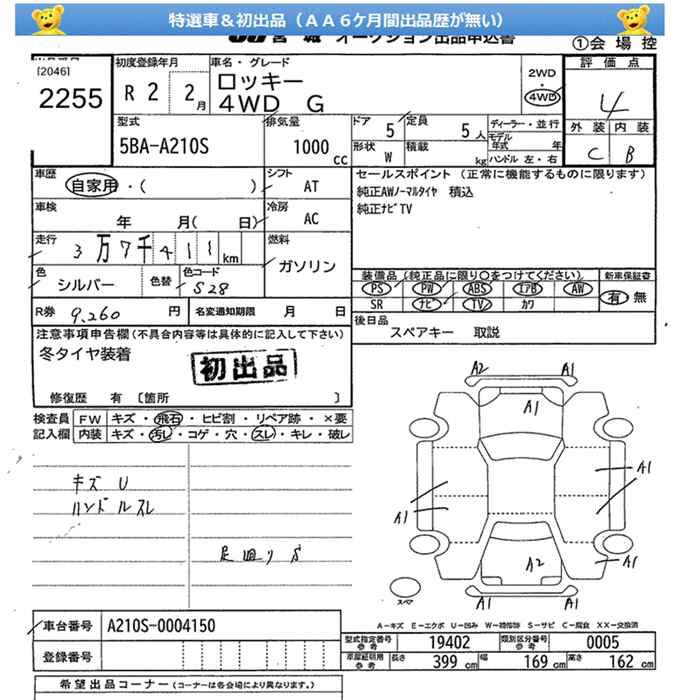 特選車＆初出品（ＡＡ６ケ月間出品歴が無い）
オークション出品申込書
①会 場 控
[2046]
2255
初度登録年月
R 2 2月
車名・グレード
ロッキー
4WD G
2WD
・
4WD
評 価 点
4
外 装 内 装
C B
型式
5BA-A210S
排気量
1000 cc
ドア 5
定員 5人
形状 W
積載 kg
ディーラー・並行
モデル
年式 年
ハンドル 左・右
車歴
自家用・( )
シフト
AT
セールスポイント (正常に機能するものに限ります)
純正AWノーマルタイヤ 積込
純正ナビTV
車検
年 月( 日)
冷房
AC
走行
3万7千411km
燃料
ガソリン
色
シルバー
色替
色コード
S28
装備品 (純正品に限り○をつけてください)
PS PW ABS エアB AW
SR ナビ TV カワ
新車保証書
有・無
R券 9,260 円
名変通知期限 月 日
後日品
スペアキー 取説
注意事項申告欄 (不具合内容等は具体的に記入して下さい)
冬タイヤ装着
初出品
修復歴 有 [箇所 ]
検査員
記入欄
FW キズ・飛石・ヒビ割・リペア跡・×要
内装 キズ・汚し・コゲ・穴・スレ・キレ・破レ
キズ U
ハンドルスレ
足廻り S
A2 A1
A1
A1
A1
A1
A2
A1 A1
スペア
A－キズ E－エクボ U－凹み W－補修跡 S－サビ C－腐食 XX－交換済
車台番号 A210S-0004150
登録番号
型式指定番号
参考
19402
類別区分番号
参考
0005
参考
長さ 399 cm 幅 169 cm 高さ 162 cm
希望出品コーナー (コーナーは各会場により異なります。)